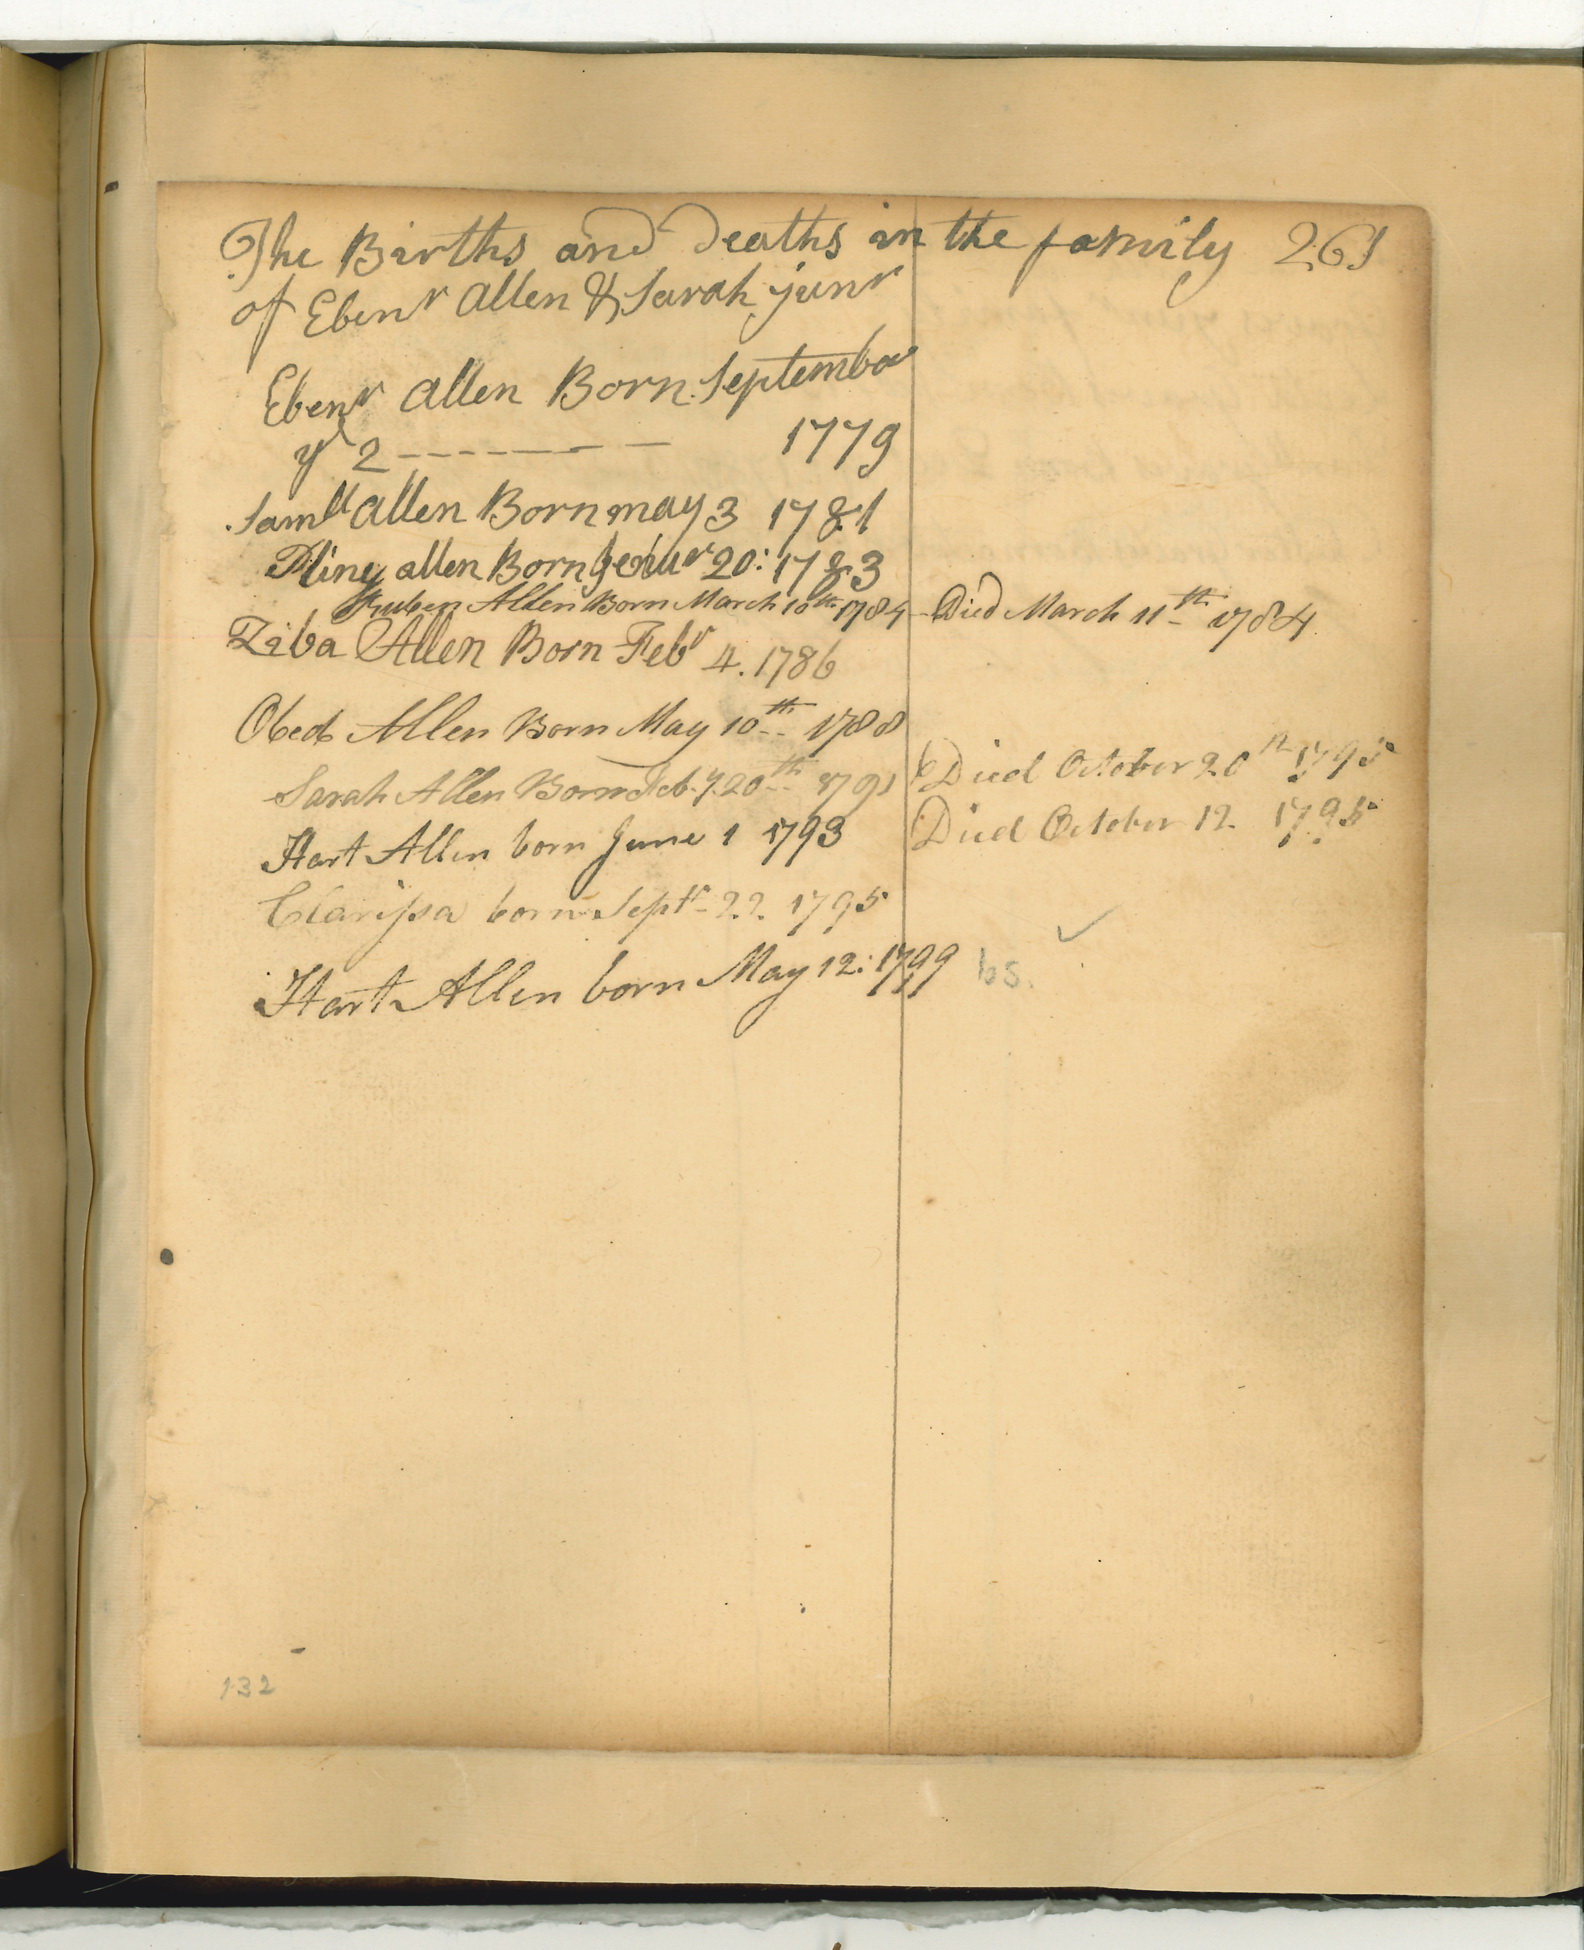 The Births and deaths in the family 261
of Ebenr Allen & Sarah junr
Ebenr Allen Born September
ye 2 - - - - - - - 1779
Samll Allen Born may 3 1781
Pliny allen Born 20: 1783
Reuben Allen Born March 10th 1784 - Died March 11th 1784
Ziba Allen Born Febr 4. 1786
Obed Allen Born May 10th 1788
Sarah Allen Born Feb. y 20th 1791 Died October 20th 1795
Hart Allen born June 1 1793 Died October 12. 1795
Clarissa born Septr 22. 1795
Hart Allen born May 12: 1799 bs.
132